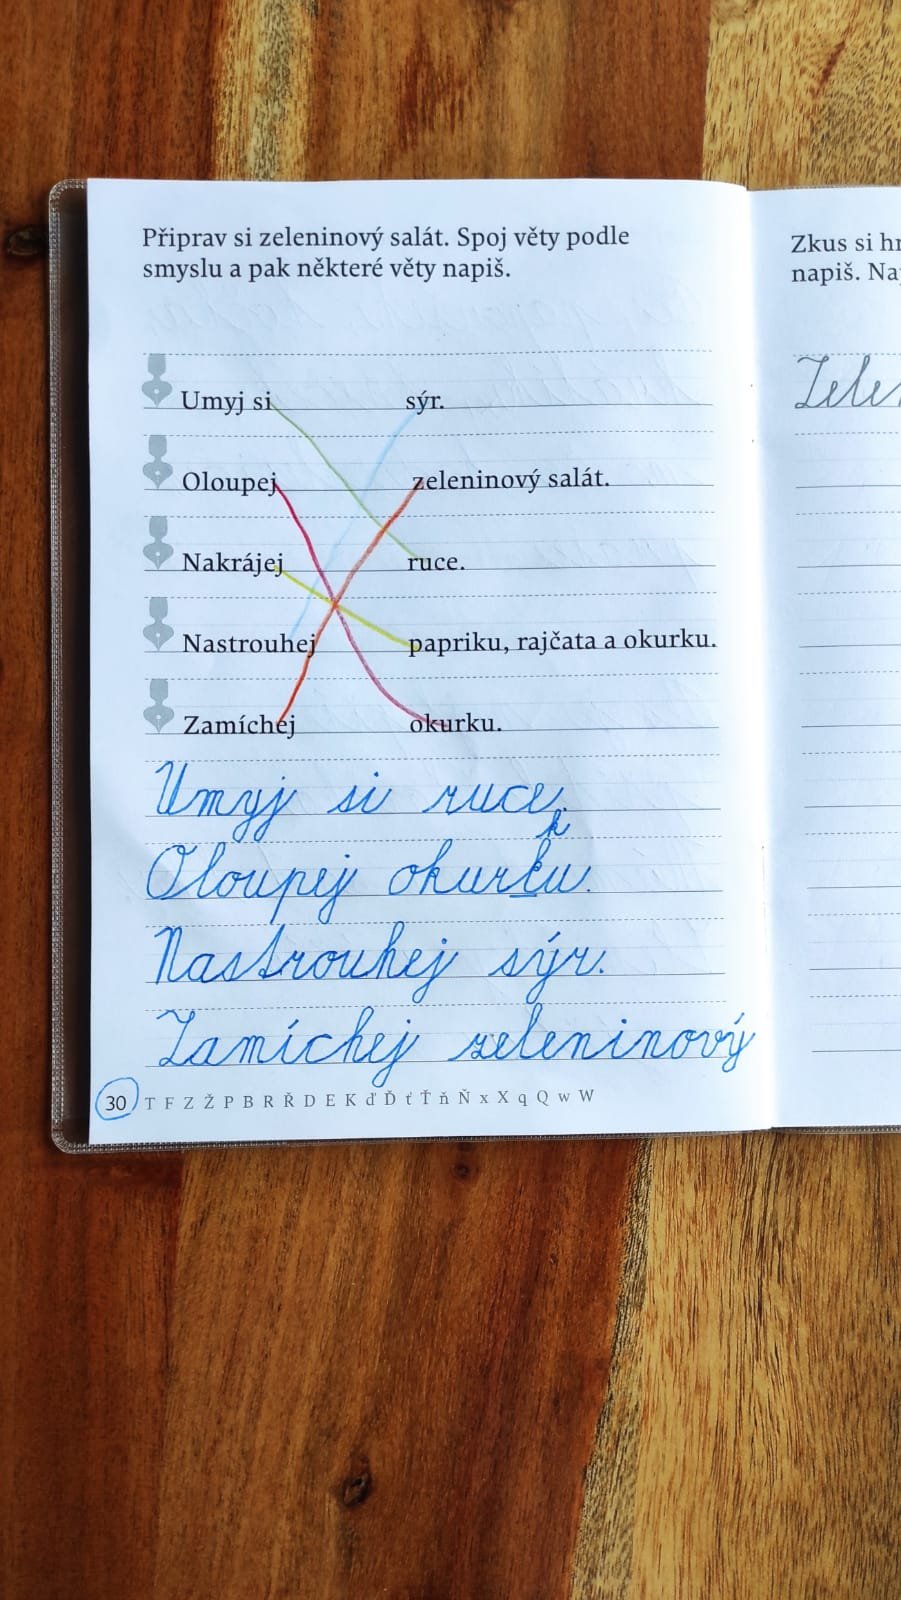 Připrav si zeleninový salát. Spoj věty podle
smyslu a pak některé věty napiš.
Umyj si sýr.
Oloupej zeleninový salát.
Nakrájej ruce.
Nastrouhej papriku, rajčata a okurku.
Zamíchej okurku.
Umyj si ruce.
k
Oloupej okurku.
Nastrouhej sýr.
Zamíchej zeleninový
30 T F Z Ž P B R Ř D E K ď Ď ť Ť ň Ň x X q Q w W
Zkus si
napiš.